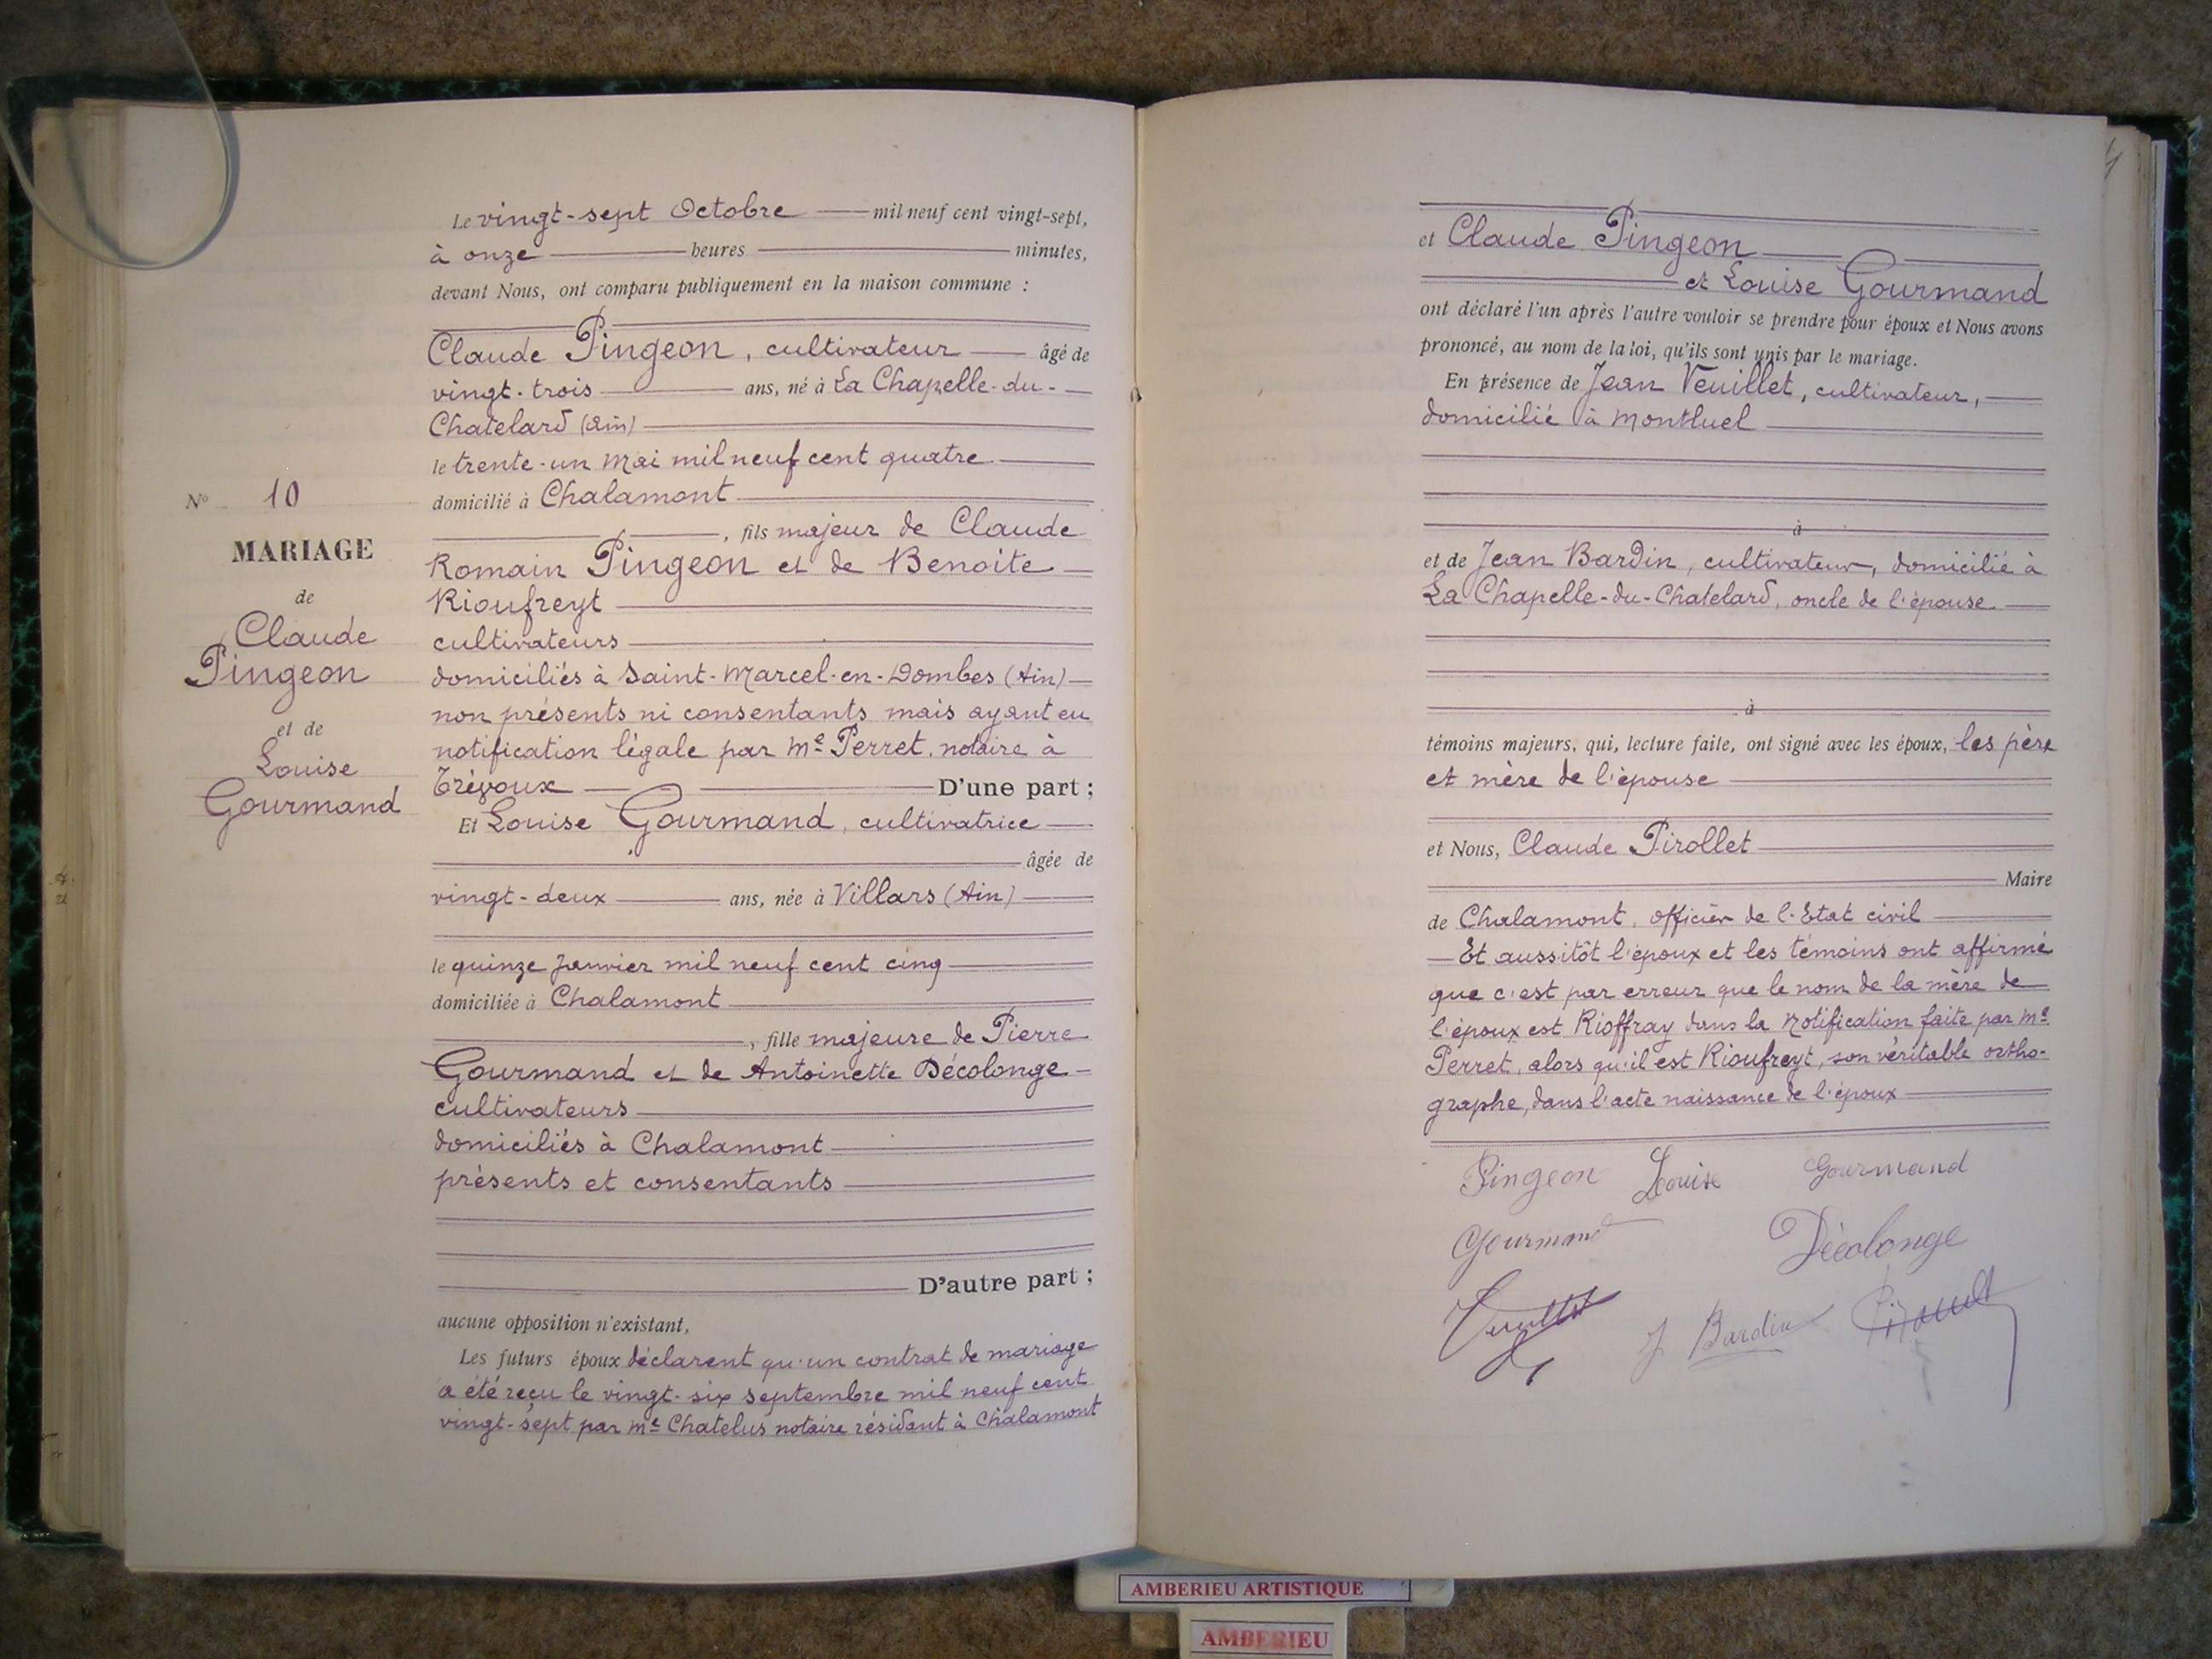 Le vingt-sept Octobre mil neuf cent vingt-sept,
à onze heures minutes,
devant Nous, ont comparu publiquement en la maison commune :
Claude Pingeon, cultivateur âgé de
vingt-trois ans, né à La Chapelle-du-
Chatelard (Ain)
le trente-un Mai mil neuf cent quatre
domicilié à Chalamont
, fils majeur de Claude
Romain Pingeon et de Benoite
Rioufreyt
cultivateurs
domiciliés à Saint-Marcel-en-Dombes (Ain)
non présents ni consentants mais ayant eu
notification légale par Me Perret, notaire à
Trévoux D'une part ;
Et Louise Gourmand, cultivatrice
âgée de
vingt-deux ans, née à Villars (Ain)
le quinze Janvier mil neuf cent cinq
domiciliée à Chalamont
, fille majeure de Pierre
Gourmand et de Antoinette Décolonge
cultivateurs
domiciliés à Chalamont
présents et consentants
D'autre part ;
aucune opposition n'existant,
Les futurs époux déclarent qu'un contrat de mariage
a été reçu le vingt-six septembre mil neuf cent
vingt-sept par Me Chatelus notaire résidant à Chalamont
No 10
MARIAGE
de
Claude
Pingeon
et de
Louise
Gourmand
et Claude Pingeon
et Louise Gourmand
ont déclaré l'un après l'autre vouloir se prendre pour époux et Nous avons
prononcé, au nom de la loi, qu'ils sont unis par le mariage.
En présence de Jean Veuillet, cultivateur,
domicilié à Montluel
à
et de Jean Bardin, cultivateur, domicilié à
La Chapelle-du-Chatelard, oncle de l'épouse
à
témoins majeurs, qui, lecture faite, ont signé avec les époux, les père
et mère de l'épouse
et Nous, Claude Pirollet
Maire
de Chalamont, officier de l'Etat civil
Et aussitôt l'époux et les témoins ont affirmé
que c'est par erreur que le nom de la mère de
l'époux est Rioffray dans la Notification faite par Me
Perret, alors qu'il est Rioufreyt, son véritable ortho-
graphe, dans l'acte naissance de l'époux
Pingeon Louise Gourmand
Gourmand Décolonge
J Bardin
AMBERIEU ARTISTIQUE
AMBERIEU